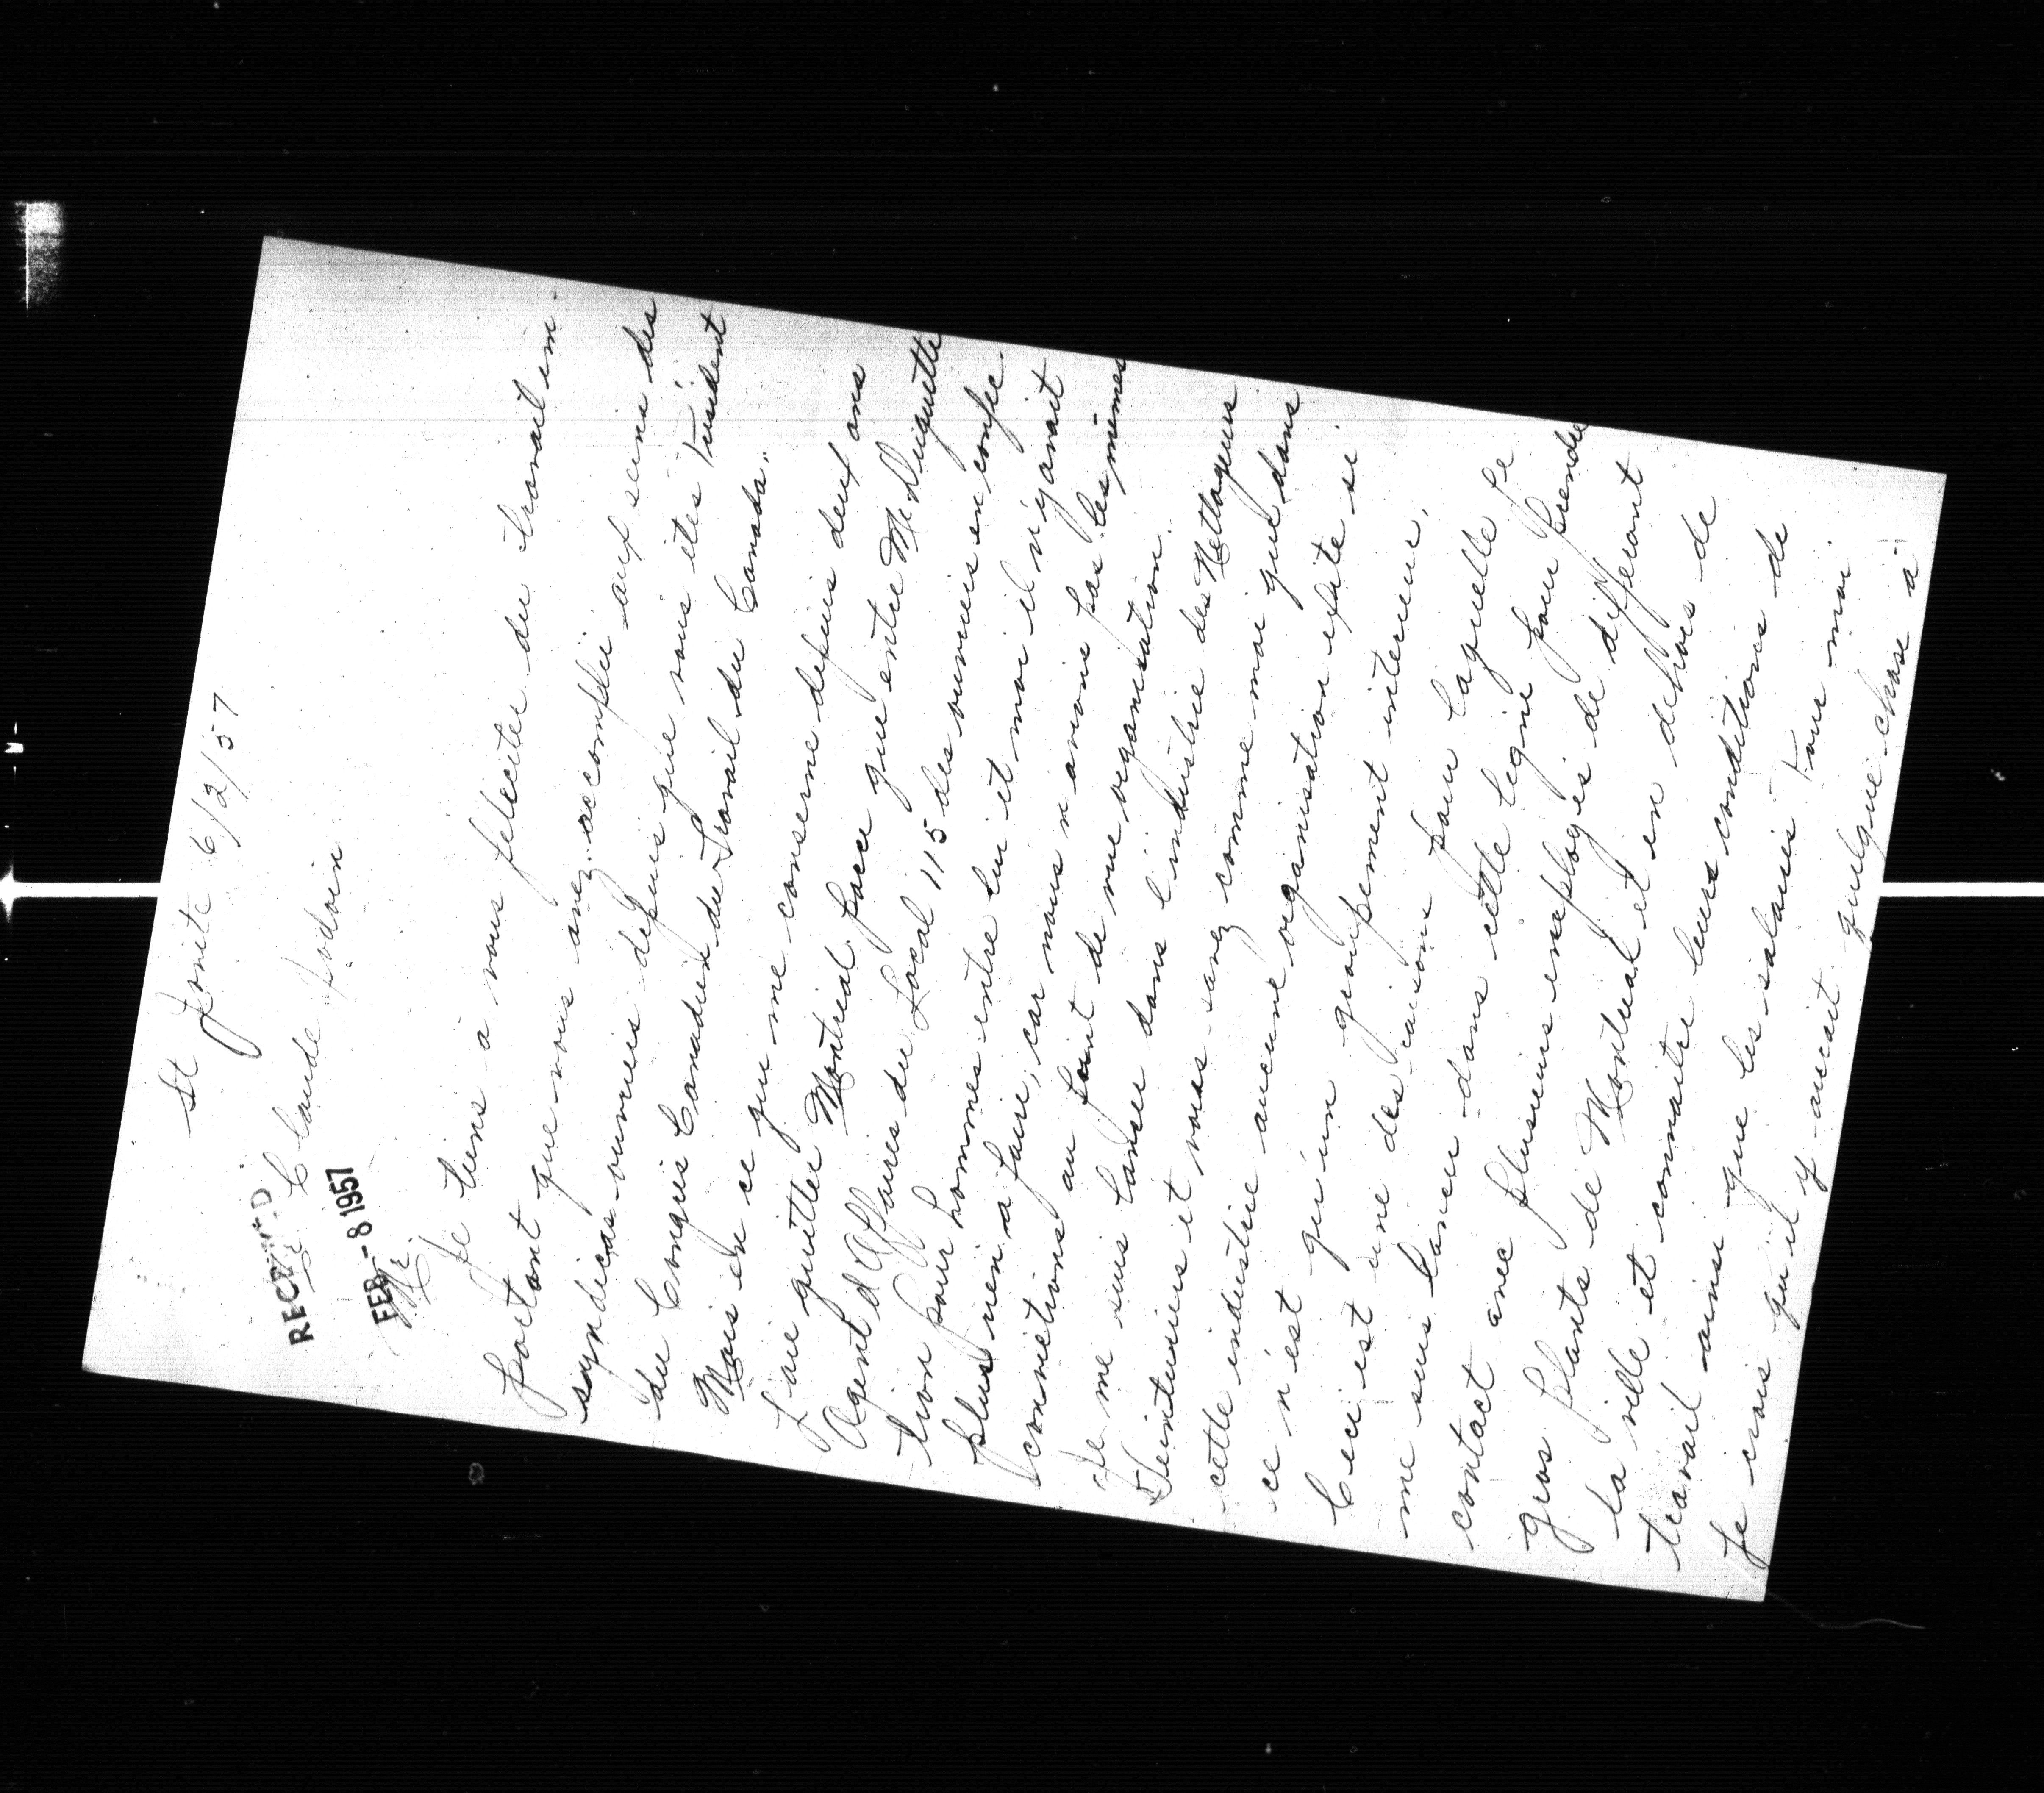 St Jovite 6/2/57
RECEIVED
Mr Claude Jodoin
FEB - 8 1957
Mr.
Je tiens a vous feleciter du travail im
portant que vous avez accomplie aux seins des
syndicas ouvriers depuis que vous êtes President
du Congres Canadien du Travail du Canada.
Mais en ce qui me conserne depuis deux ans
j'ai quitter Montreal parce que entre Mr Duquette
Agent d'Affaires du Local 115 des ouvriers en confec
tion pour hommes entre lui et moi il n'y avait
plus rien a faire, car nous n avions pas les mêmes
convictions au point de vue organisation.
Je me suis lancer dans l'industrie des Nettoyeurs
Teinturiers et vous savez comme moi que dans
cette industrie aucune organisation exite si
ce n'est qu'un groupement interieur.
Ceci est une des raisons pour laquelle je
me suis lancer dans cette ligne pour prendre
contact avec plusieurs employés de differont
gros plants de Montreal et en dehors de
la ville et connaitre leurs conditions de
travail ainsi que les salaires. Pour moi
je crois qu'il y aurait quelque chose a